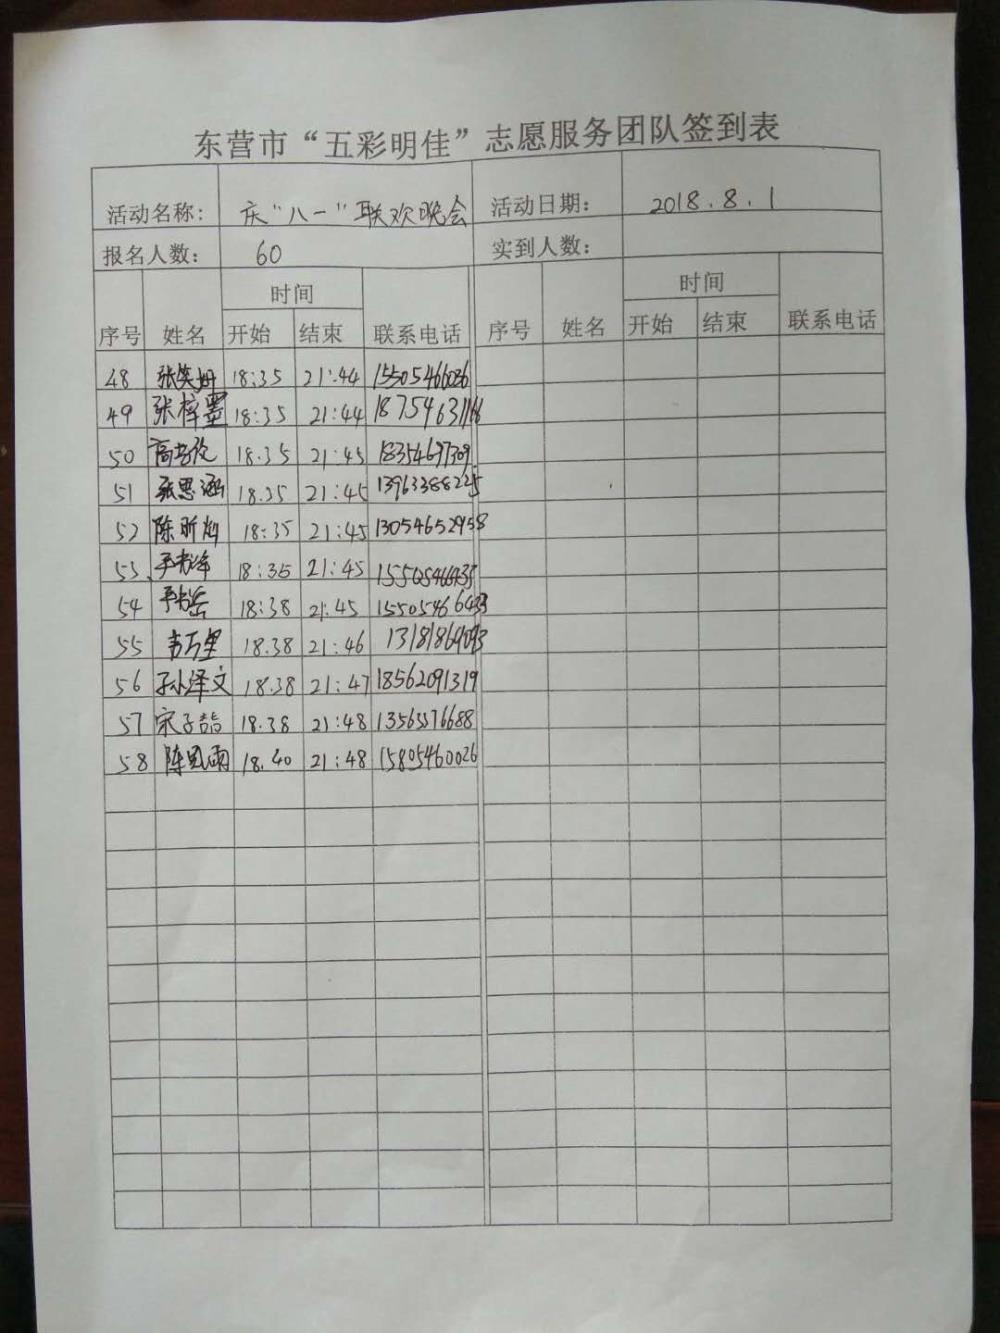 东营市“五彩明佳”志愿服务团队签到表
活动名称： 庆“八一”联欢晚会 活动日期： 2018.8.1
报名人数： 60 实到人数：
时间 时间
序号 姓名 开始 结束 联系电话 序号 姓名 开始 结束 联系电话
48 张笑姗 18:35 21:44 15505466026
49 张梓墨 18:35 21:44
50 18.35 21:45 18354697309
51 张思涵 18.35 21:45 13963388225
52 陈昕灿 18:35 21:45 13054652958
53 18:36 21:45
54 18:38 21.45
55 韦万里 18.38 21:46 13181869093
56 孙泽文 18.38 21:47 18562091319
57 宋子喆 18.38 21:48 13565376688
58 陈风雨 18.40 21:48 15805460026